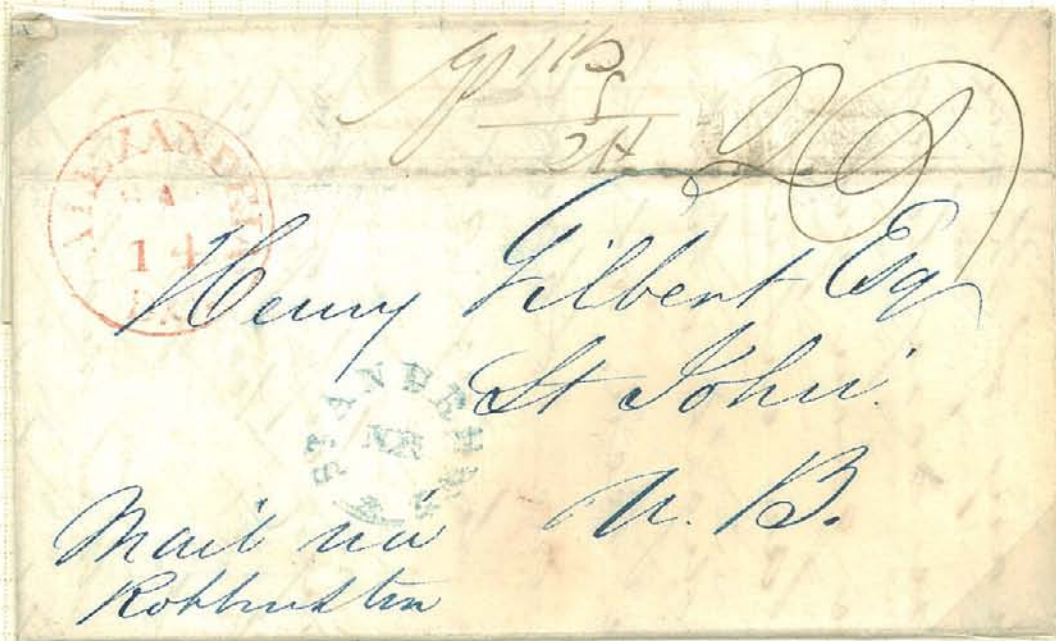 ALEXANDRIA
14
25
Henry Gilbert Esq
St John.
ST ANDREWS
NB
N. B.
Mail via
Robbinston